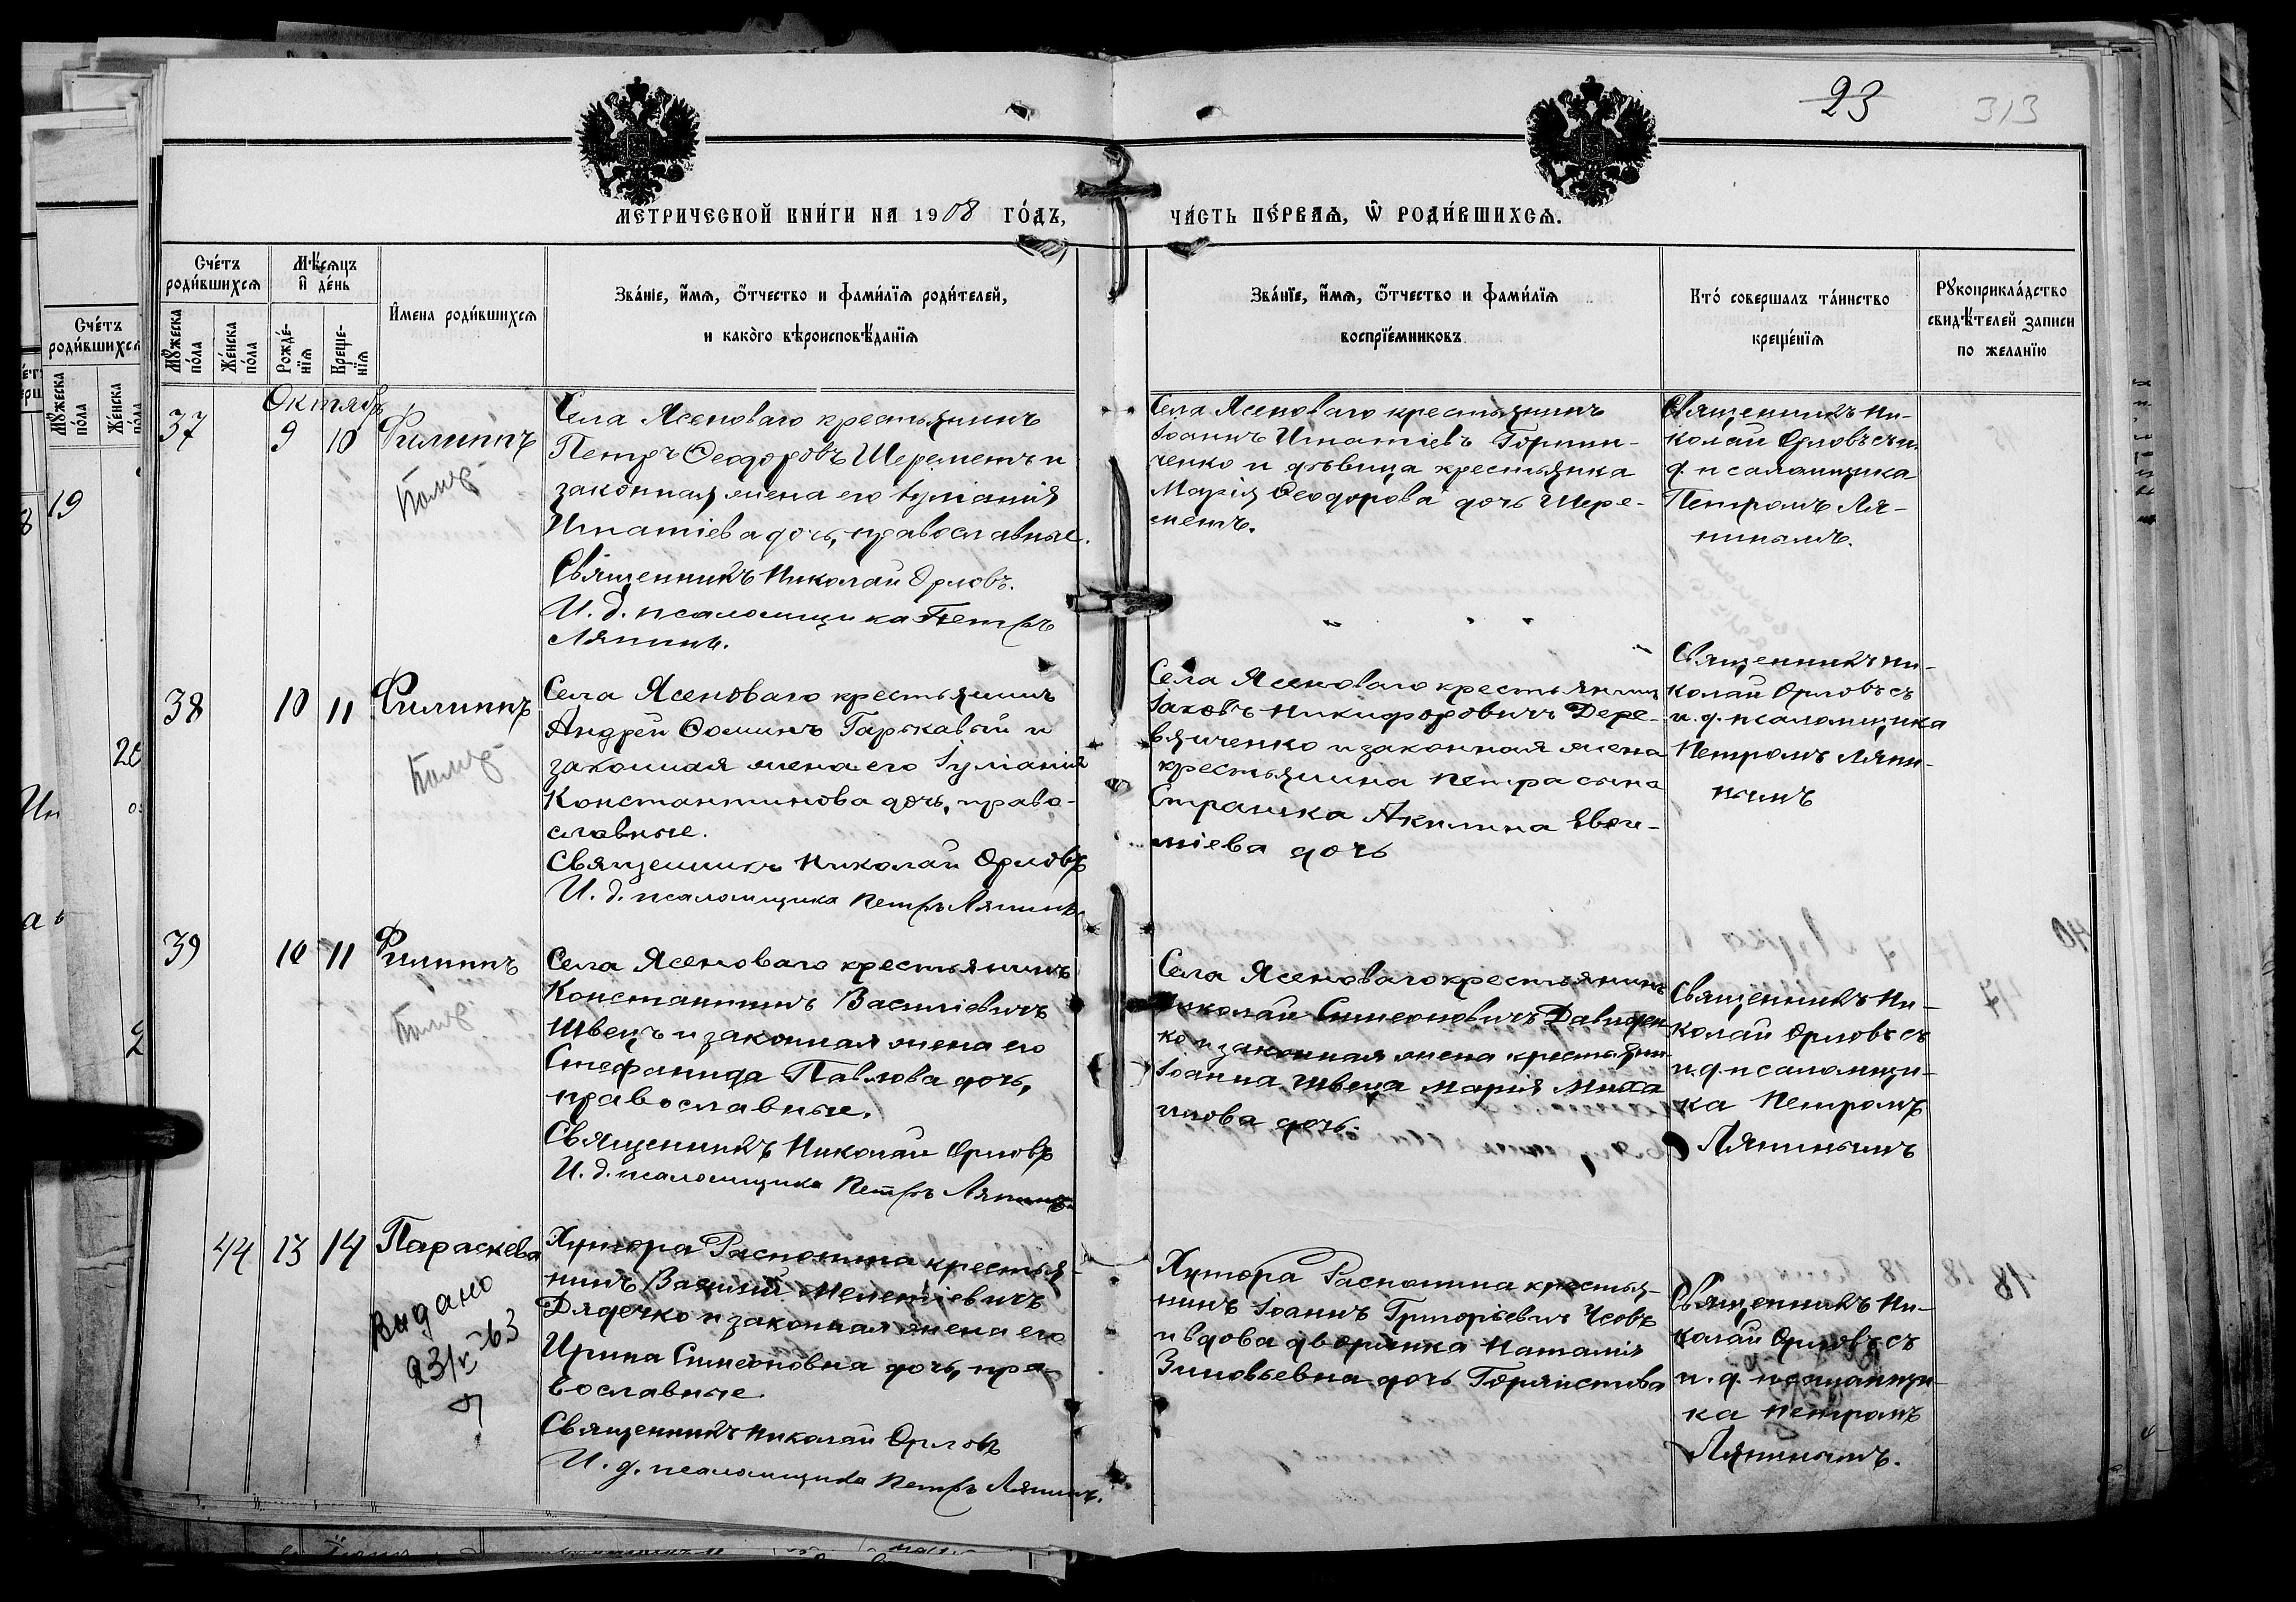 23
313
МЕТРИЧЕСКОЙ КНИ́ГИ НА 1908 ГО́ДЪ,
ЧА́СТЬ ПЕ́РВАЯ, Ѡ РОДИ́ВШИХСЯ.
Сче́тъ
роди́вшихся
Му́жеска
по́ла
Же́нска
по́ла
Мѣ́сяцъ
и де́нь
Рожде́-
нія
Креще-
нія
Имена роди́вшихся
Зва́ніе, и́мя, о́тчество и фами́лія роди́телей,
и како́го вѣроисповѣ́данія
Зва́ніе, и́мя, о́тчество и фами́лія
воспріе́мниковъ
Кто́ совершалъ та́инство
креще́нія
Рукоприкла́дство
свидѣ́телей записи
по желанію
Октябрь
37
9
10
Филиппъ
Села Ясеноваго крестьянинъ
Петръ Ѳеодоровъ Шереметъ и
законная жена его Іуліанія
Игнатіева дочь, православные.
Священникъ Николай Орловъ.
И. д. псаломщика Петръ
Ляпинъ.
Села Ясеноваго крестьянинъ
Іоаннъ Игнатіевъ
и дѣвица крестьянка
Марія Ѳеодорова дочь Шере-
метъ.
Священникъ Ни-
колай Орловъ съ и.
д. псаломщика
Петромъ Ля-
пинымъ.
38
10
11
Филиппъ
Села Ясеноваго крестьянинъ
Андрей Ѳоминъ Гарькавый и
законная жена его Іуліанія
Константинова дочь, право-
славные.
Священникъ Николай Орловъ
И. д. псаломщика Петръ Ляпинъ.
Села Ясеноваго крестьянинъ
Іаковъ Никифоровичъ Дере-
вянченко и законная жена
крестьянина Петра сына
Страшка Акилина Евѳи-
міева дочь
Священникъ Ни-
колай Орловъ съ
и. д. псаломщика
Петромъ Ляпи-
нымъ
39
10
11
Филиппъ
Села Ясеноваго крестьянинъ
Константинъ Василіевичъ
Швецъ и законная жена его
Стефанида Павлова дочь,
православные.
Священникъ Николай Орловъ
И. д. псаломщика Петръ Ляпинъ
Села Ясеноваго крестьянинъ
Николай Симеоновичъ Давиден-
ко и законная жена крестьянин.
Іоанна Швеца Марія Миха
илова дочь.
Священникъ Ни-
колай Орловъ съ
и. д. псаломщи-
ка Петромъ
Ляпинымъ
44
13
14
Параскева
видано
23/V-63
Хутора Распопина крестья-
нинъ Василій Мелетіевичъ
Дядечко и законная жена его
Ирина Симеоновна дочь, пра-
вославные.
Священникъ Николай Орловъ
И. д. псаломщика Петръ Ляпинъ.
Хутора Распопина крестья-
нинъ Іоаннъ Григорьевичъ Чеовъ
и вдова дворянка Наталія
Зиновьевна дочь
Священникъ Ни-
колай Орловъ съ
и. д. псаломщи-
ка Петромъ
Ляпинымъ.
Сче́тъ
роди́вшихся
Му́жеска
по́ла
Же́нска
по́ла
19